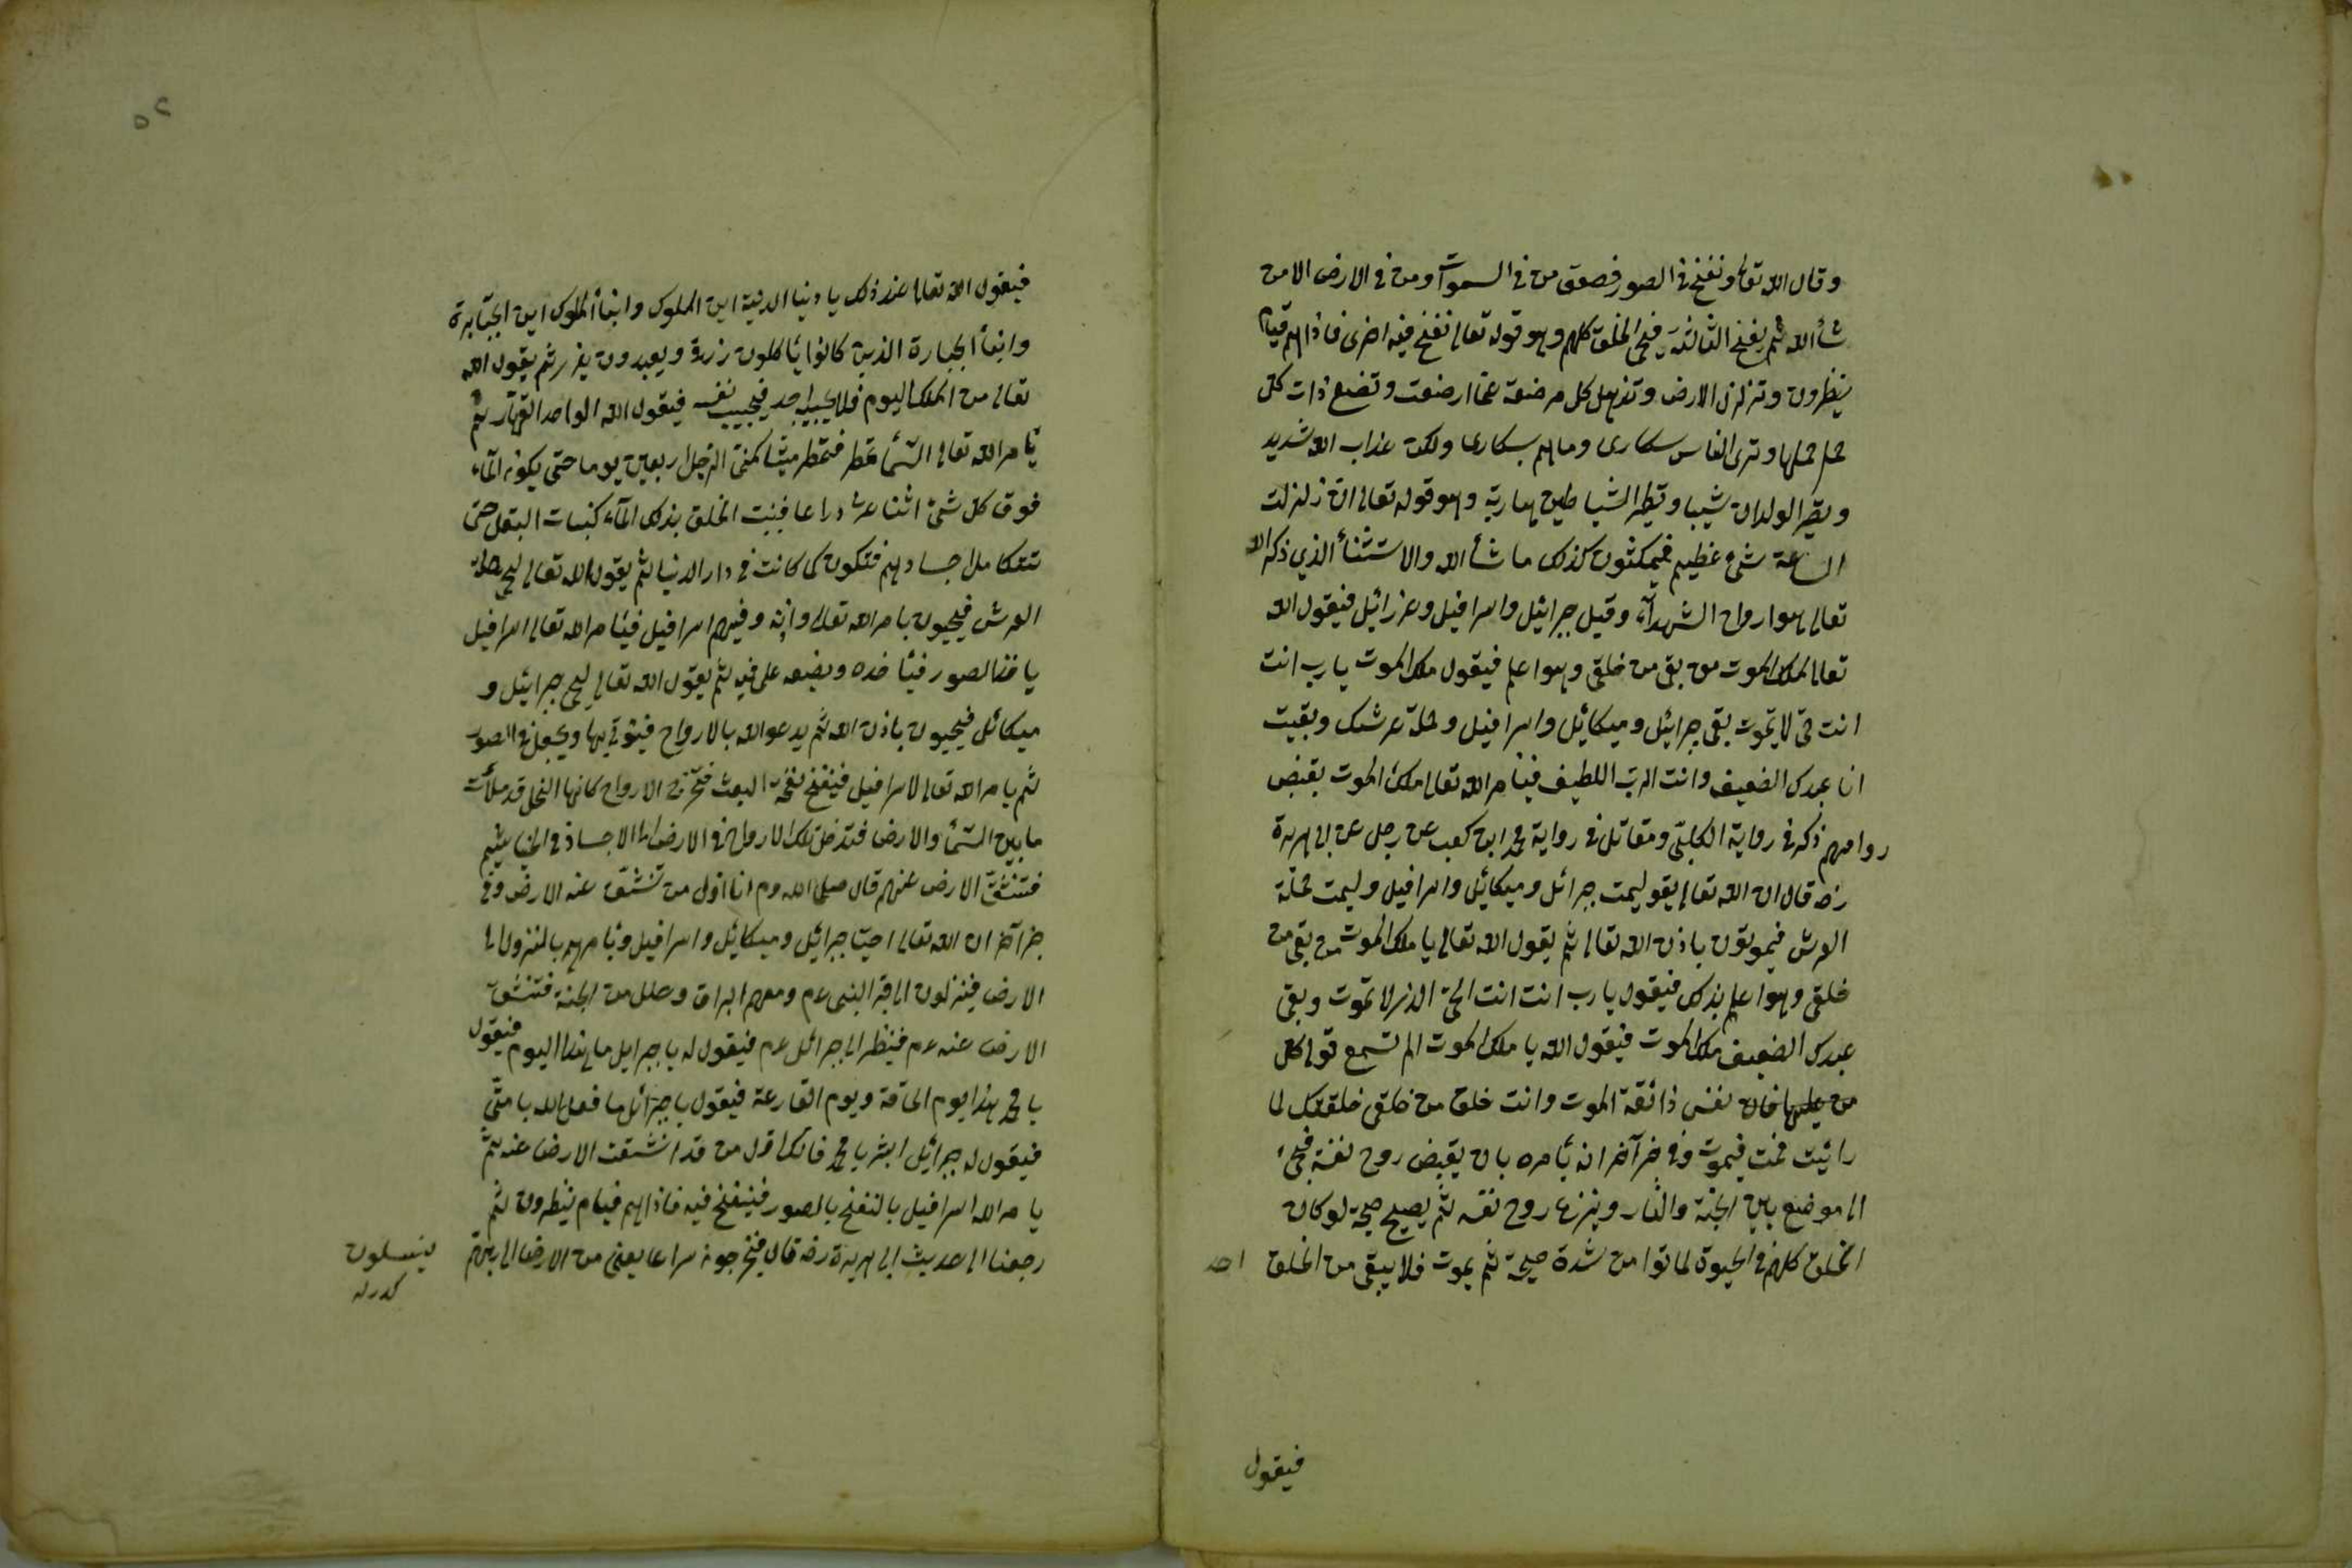 وقال الله تعالى ونفخ في الصور فصعق من في السموات ومن في الارض الا من
شأ الله ثم ينفخ الثالثة فيحي الخلق كلهم وهو قوله تعالى نفخ فيه اخرى فاذا هم قيام
ينظرون وتزلزل الارض وتذهل كل مرضعة عما ارضعت وتضع ذات كل
حمل حملها وترى الناس سكارى وماهم بسكارى ولكن عذاب الله شديد
ويصير الولدان شيبا وتطير الشياطين هاربة وهو قوله تعالى ان زلزلت
الساعة شئ عظيم فيمكثون كذلك ما شأ الله والاستثنأ الذي ذكر الله
تعالى هو ارواح الشهدآء وقيل جبرائيل واسرافيل وعزرائيل فيقول الله
تعالى لملك الموت من بقى من خلقى وهو اعلم فيقول ملك الموت يارب انت
انت حى لا تموت بقى جبرائيل وميكائيل واسرافيل وحملة عرشك وبقيت
انا عبدك الضعيف وانت الرب اللطيف فيأمر الله تعالى ملك الموت بقبض
روا حهم ذكره في رواية الكلبى ومقاتل في رواية محمد ابن كعب عن رجل عن ابى هريرة
رضه قال ان الله تعالى يقول ليمت جبرائل وميكائيل واسرافيل وليمت حملة
العرش فيموتون باذن الله تعالى ثم يقول الله تعالى يا ملك الموت من بقى من
خلقى وهو اعلم بذلك فيقول يا رب انت انت الحى الذى لا تموت وبقى
عبدك الضعيف ملك الموت فيقول الله يا ملك الموت الم تسمع قولى كل
نفس ذائقة الموت وانت خلق من خلقى خلقتك لما
رائيت فمت فيموت وفى خبر آخر انه يأمره بان يقبض روح نفسه فيجئ
الى موضع بين الجنة والنار وينزع روح نفسه ثم يصيح صيحة لو كان
الخلق كلهم فى الحيوة لماتوا من شدة صيحة ثم يموت فلا يبقى من الخلق احد
فيقول
٥٢
فيقول الله تعالى عند ذلك يا دنيا الدنية اين الملوك وابنأ الملوك اين الجبابرة
وابنأ الجبارة الذين كانوا يأكلون رزقى ويعبدون غيرى ثم يقول الله
تعالى من الملك اليوم فلا يجيبه احد فيجيب نفسه فيقول الله الواحد القهار ثم
يأمر الله تعالى السمأ تمطر فتمطر ميتا كمنى الرجل اربعين يوما حتى يكون المآء
فوق كل شئ اثنا عشر ذراعا فينبت الخلق بذلك المآء كنبات البقل حتى
تتكامل اجسادهم فتكون كما كانت فى دار الدنيا ثم يقول الله تعالى ليحى حملة
العرش فيحيون بامر الله تعالى واذنه وفيهم اسرافيل فيأمر الله تعالى اسرافيل
ياخذ الصور فيأخذه ويضعه على فيه ثم يقول الله تعالى ليحى جبرائيل و
ميكائل فيحيون باذن الله ثم يدعو الله بالارواح فيؤتى بها ويجعل في الصور
ثم يامر الله تعالى لاسرافيل فينفخ نفخة البعث فتخرج الارواح كانها النحل قد ملأت
ما بين السمأ والارض فتدخل تلك الارواح فى الارض الى الاجساد فى الخياشيم
فتنشق الارض عنهم قال صلى الله وم انا اول من تنشق عنه الارض وفى
خبر آخر ان الله تعالى احيا جبرائيل وميكائيل واسرافيل ويأمرهم بالنزول الى
الارض فينزلون الى قبر النبى عم ومعهم البراق وحلل من الجنة فتنشق
الارض عنه عم فينظر الى جبرائل عم فيقول له يا جبرايل ما هذا اليوم فيقول
يا محمد هذا يوم الحاقة ويوم القارعة فيقول يا جبرائل ما فعل الله بامتى
فيقول له جبرائيل ابشر يا محمد فانك اول من قد انشقت الارض عنه ثم
يامر الله اسرافيل بالنفخ بالصور فينفخ فيه فاذا هم قيام ينظرون ثم
رجعنا الى حديث ابى هريرة رضه قال فيخرجون سراعا يعنى من الارض الى ربهم
ينسلون